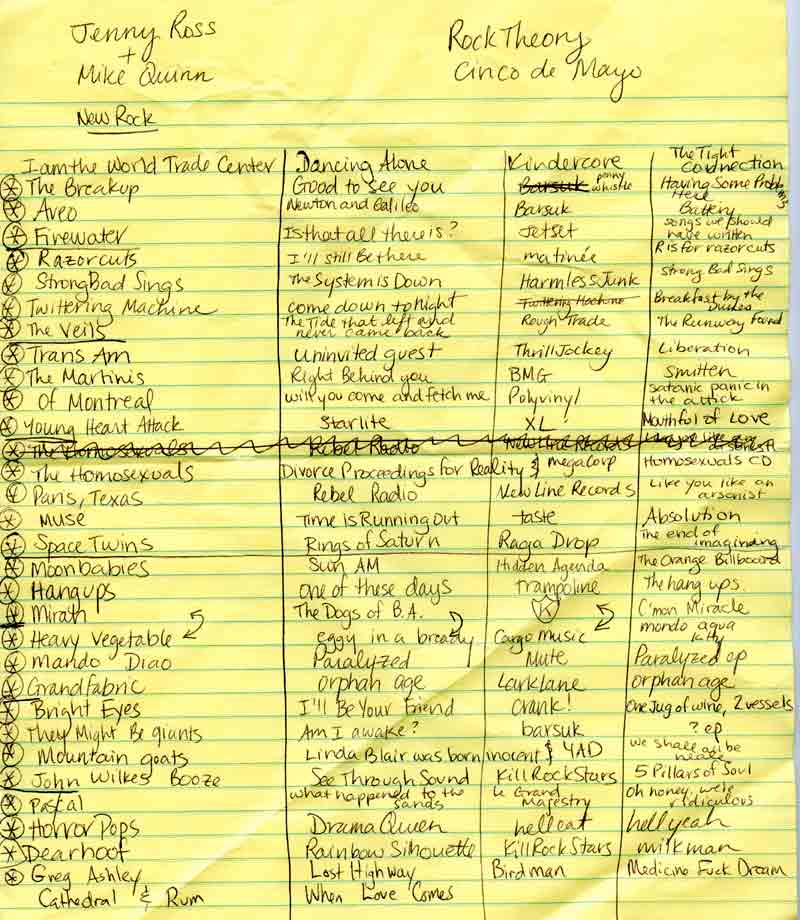 Jenny Ross
+
Mike Quinn
Rock Theory
Cinco de Mayo
New Rock
I am the World Trade Center Dancing Alone Kindercore The Tight Connection
The Breakup Good to see you Barsuk penny whistle Having Some Probl Here #3
Aveo Newton and Galileo Barsuk Battery
Firewater Is that all there is? Jetset songs we should have written
Razorcuts I'll still Be there matinée R is for razorcuts
StrongBad Sings The System is Down Harmless Junk strong Bad Sings
Twittering Machine come down tonight Twittering Machine Breakfast by the
The Veils The Tide that left and never came back Rough Trade The Runaway Found
Trans Am uninvited guest Thrill Jockey Liberation
The Martinis Right Behind you BMG Smitten
Of Montreal will you come and fetch me Polyvinyl satanic panic in the attack
Young Heart Attack Starlite XL Mouthful of Love
The Homosexuals Rebel Radio New Line Records
The Homosexuals Divorce Proceedings for Reality & megacorp Homosexuals CD
Paris, Texas Rebel Radio New Line Records Like you like an arsonist
Muse Time Is Running Out taste Absolution
Space Twins Rings of Saturn Raga Drop The end of imagining
Moonbabies Sun AM Hidden Agenda The Orange Billboard
Hangups one of these days Trampoline The hang ups.
Mirah The Dogs of B.A. K C'mon Miracle
Heavy Vegetable eggy in a bready Cargo music mondo aqua kitty
Mando Diao Paralyzed Mute Paralyzed ep
Grandfabric orphan age Larklane orphan age
Bright Eyes I'll Be Your Friend Crank! One Jug of wine, 2 vessels
They Might Be giants Am I awake? barsuk ? ep
Mountain goats Linda Blair was born inocent & 4AD we shall all be
John Wilkes Booze See Through Sound Kill Rock Stars 5 Pillars of Soul
Pascal what happened to the sands Le Grand Magestry oh honey, we're ridiculous
Horror Pops Drama Queen hellcat hell yeah
Dearhoof Rainbow Silhouette Kill Rock Stars milkman
Greg Ashley Lost Highway Birdman Medicine Fuck Dream
Cathedral & Rum When Love Comes